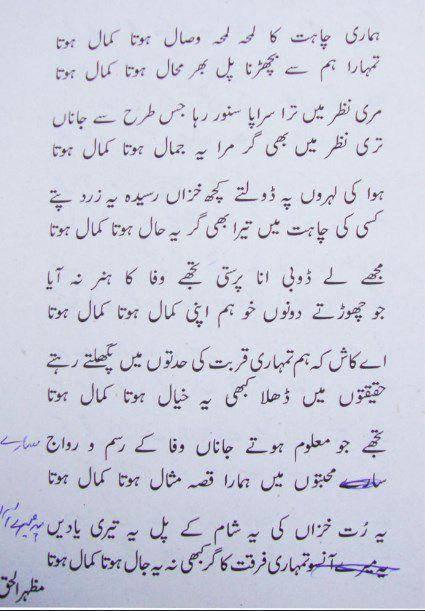 ہماری چاہت کا لمحہ لمحہ وصال ہوتا کمال ہوتا
تمہارا ہم سے بچھڑنا پل بھر محال ہوتا کمال ہوتا
مری نظر میں ترا سراپا سنور رہا جس طرح سے جاناں
تری نظر میں بھی گر مرا یہ جمال ہوتا کمال ہوتا
ہوا کی لہروں پہ ڈولتے کچھ خزاں رسیدہ یہ زرد پتے
کسی کی چاہت میں تیرا بھی گر یہ حال ہوتا کمال ہوتا
مجھے لے ڈوبی انا پرستی تجھے وفا کا ہنر نہ آیا
جو چھوڑتے دونوں خو ہم اپنی کمال ہوتا کمال ہوتا
اے کاش کہ ہم تمہاری قربت کی حدتوں میں پگھلتے رہتے
حقیقتوں میں ڈھلا کبھی یہ خیال ہوتا کمال ہوتا
تجھے جو معلوم ہوتے جاناں وفا کے رسم و رواج سارے
سارے محبتوں میں ہمارا قصہ مثال ہوتا کمال ہوتا
یہ رُت خزاں کی یہ شام کے پل یہ تیری یادیں یہ میرے
یہ میرے آنسو تمہاری فرقت کا گر کبھی نہ یہ جال ہوتا کمال ہوتا
مظہر الحق